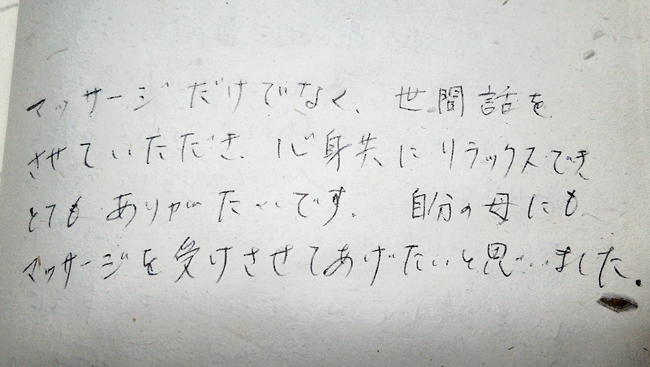 マッサージだけでなく、世間話を
させていただき、心身共にリラックスでき
とてもありがたいです。 自分の母にも
マッサージを受けさせてあげたいと思いました。